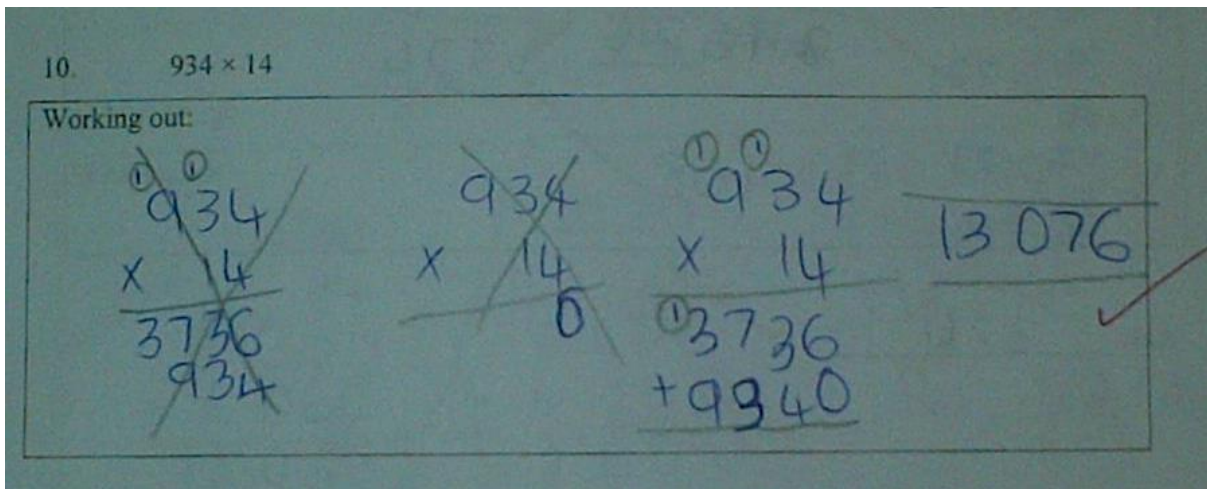 10. 934 × 14
Working out:
① ①
934
x 14
3736
934
934
x 14
0
① ①
934
x 14
①3736
+9940
13 076